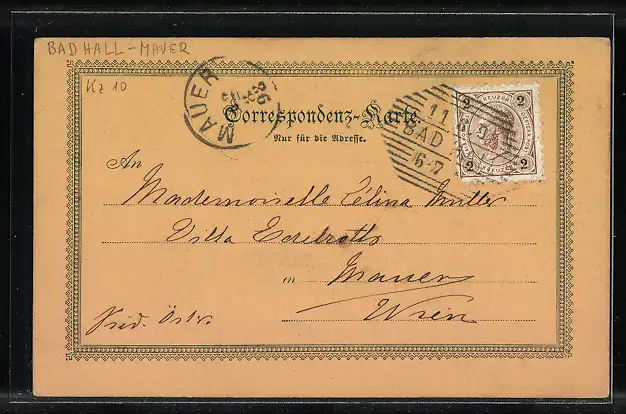 BAD HALL - MAUER
Kz 10
MAUER
Correspondenz-Karte.
Nur für die Adresse.
11
BAD
6-7
2 2
KREUZER
2 2
An
Mademoiselle Célina Müller
Villa
in Mauer
Wien
Öster.